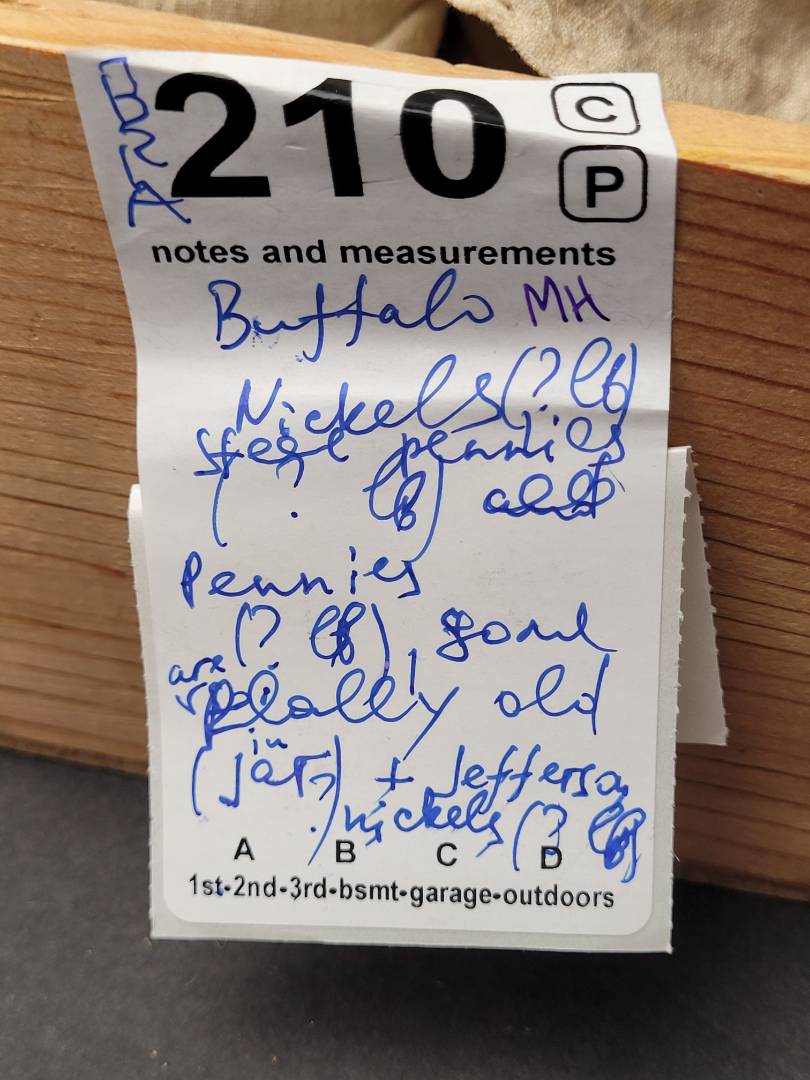 210
C
P
notes and measurements
Buffalo MH
Nickels (? lb)
steel pennies
(? lb) and
Pennies
(? lb), some
are
really old
(in jar?) + Jefferson
nickels (? lb)
A B C D
1st-2nd-3rd-bsmt-garage-outdoors